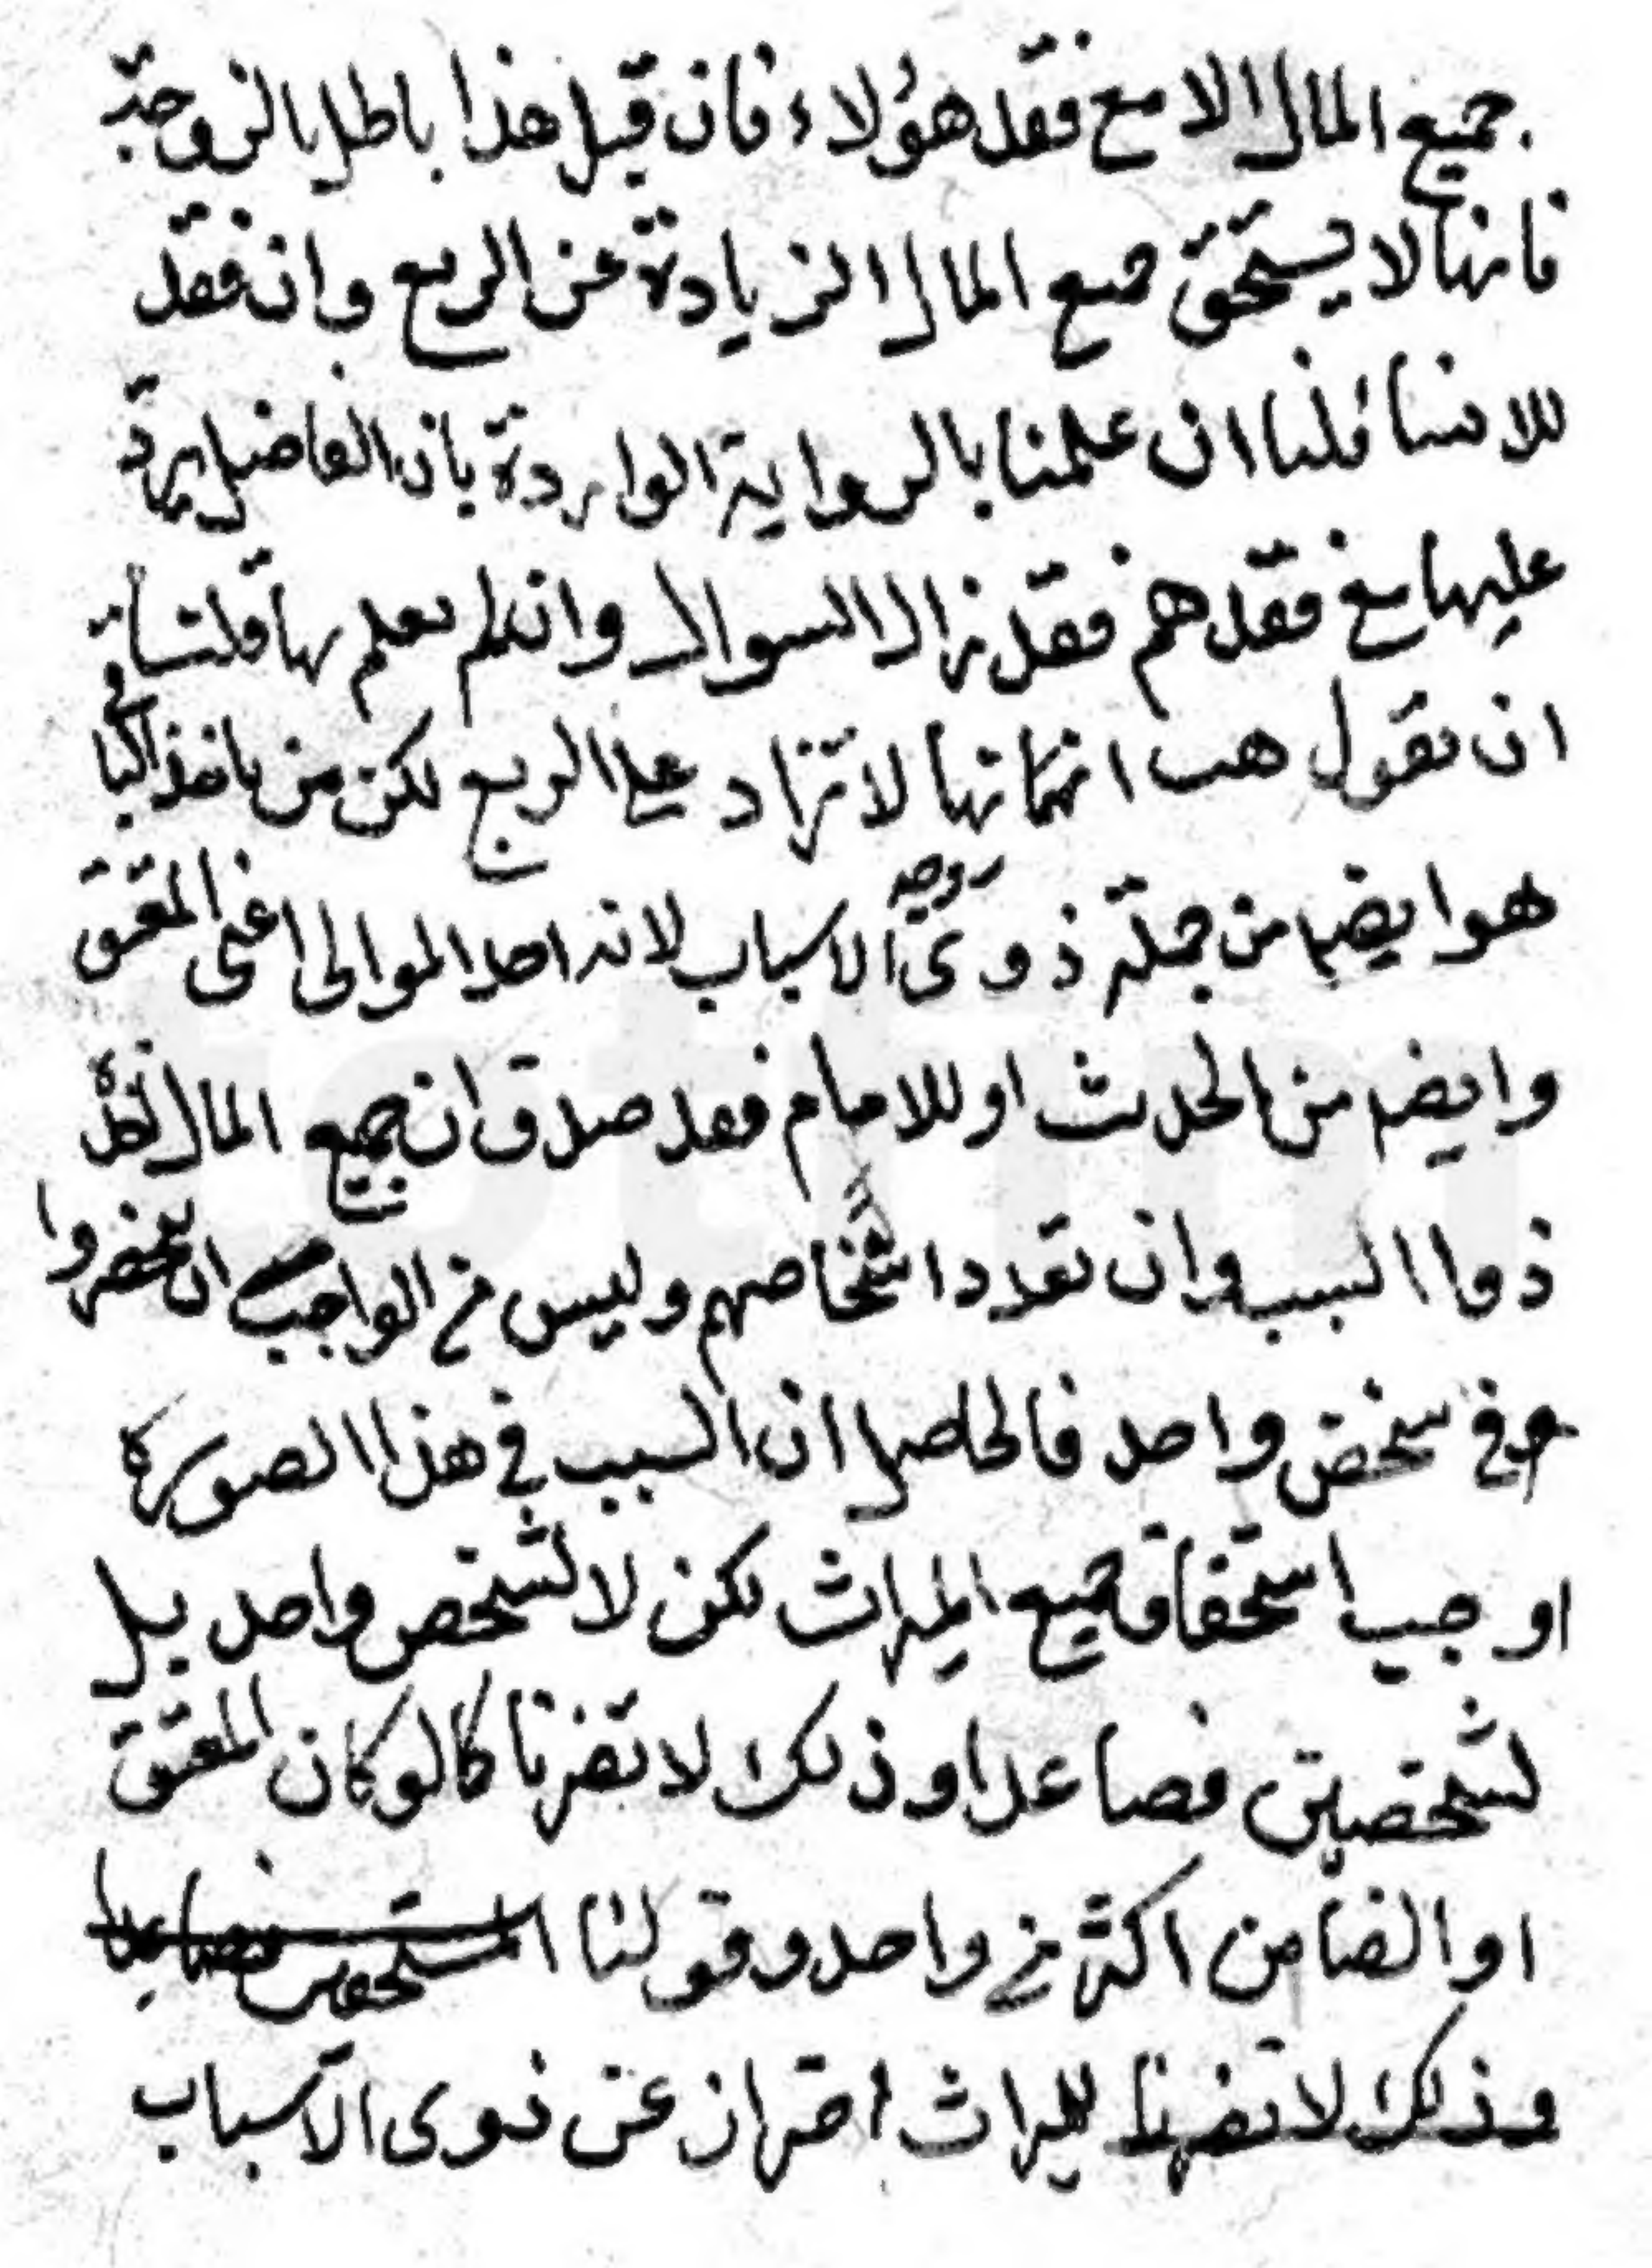 جميع المال الا مع فقد هؤلاء فان قيل هذا باطل بالزوجة
فانها لا يستحق جميع المال الزيادة عن الربع وان فقد
قلنا ان علمنا بالرواية الواردة بان الفاضل يرد
عليها مع فقدهم فقد زال السوال وان لم نعلم بها قلنا
ان نقول هب انها لا تزاد على الربع لكن من ياخذ
هو ايضا من جملة ذوى الاسباب لانه احد الموالى اعنى المعتق
وايضا من الحدث او للامام فقد صدق ان جميع المال
ذوا السبب وان تعدد اشخاصهم وليس من الواجب ان ينحصروا
فى شخص واحد فالحاصل ان السبب فى هذا الصورة
اوجب استحقاق جميع الميراث لكن لا لشخص واحد بل
لشخصين فصاعدا وذلك لا تضرنا كما لو كان المعتق
او الضامن اكثر من واحد وقولنا المستحقين فصاعدا
وذلك لا تضرنا للميراث احتراز عن ذوى الاسباب